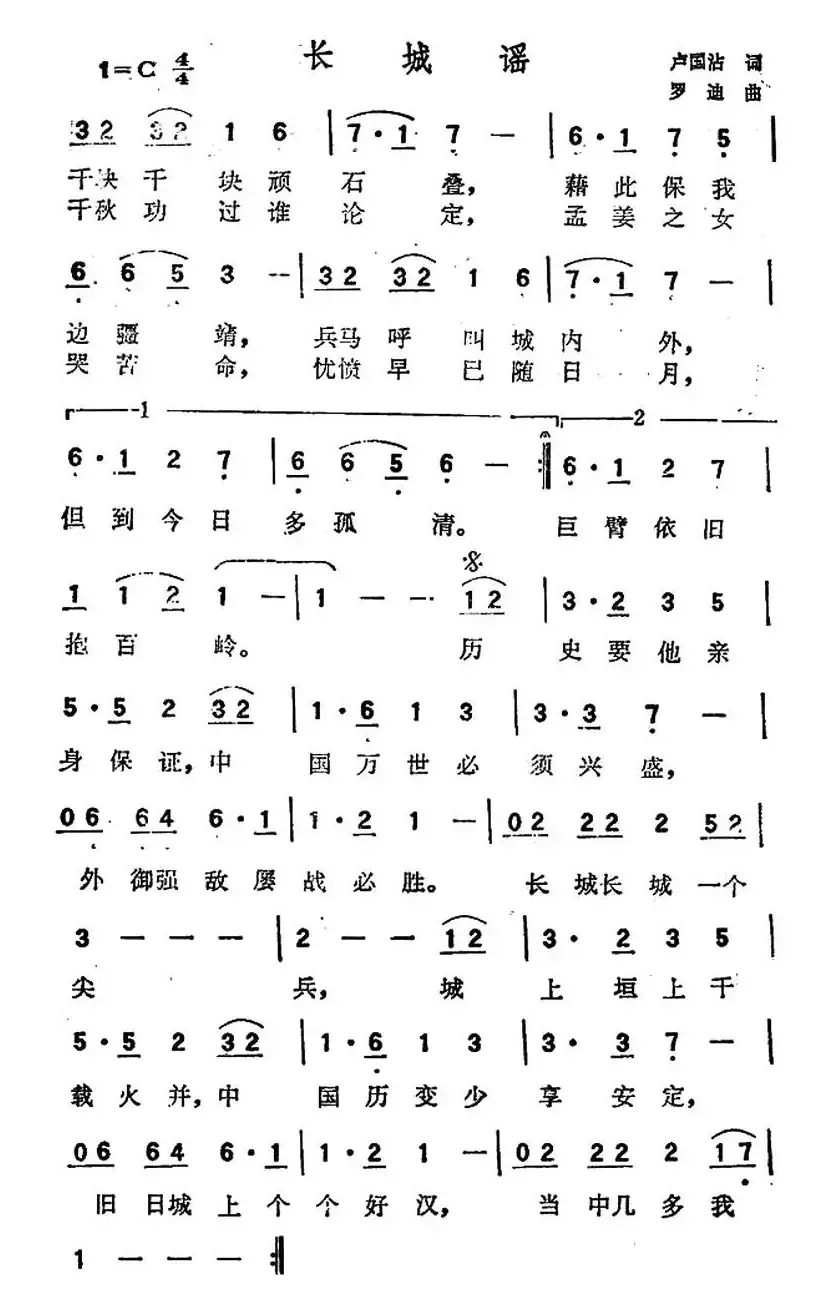 长城谣
1=C 4/4
卢国沾 词
罗迪 曲
32 32 1 6 | 7·1 7 — | 6·1 7 5 |
千块千块顽石叠，藉此保我
千秋功过谁论定，孟姜之女
6 65 3 — | 32 32 1 6 | 7·1 7 — |
边疆靖，兵马呼叫城内外，
哭苦命，忧愤早已随日月，
1 2
6·1 2 7 | 6 65 6 — :‖ 6·1 2 7 |
但到今日多孤清。巨臂依旧
1 12 1 — | 1 — — 12 | 3·2 3 5 |
抱百岭。历史要他亲
5·5 2 32 | 1·6 1 3 | 3·3 7 — |
身保证，中国万世必须兴盛，
06 64 6·1 | 1·2 1 — | 02 22 2 52 |
外御强敌屡战必胜。长城长城一个
3 — — — | 2 — — 12 | 3·2 3 5 |
尖兵，城上垣上千
5·5 2 32 | 1·6 1 3 | 3·3 7 — |
载火并，中国历变少享安定，
06 64 6·1 | 1·2 1 — | 02 22 2 17 |
旧日城上个个好汉，当中几多我
1 — — — :‖